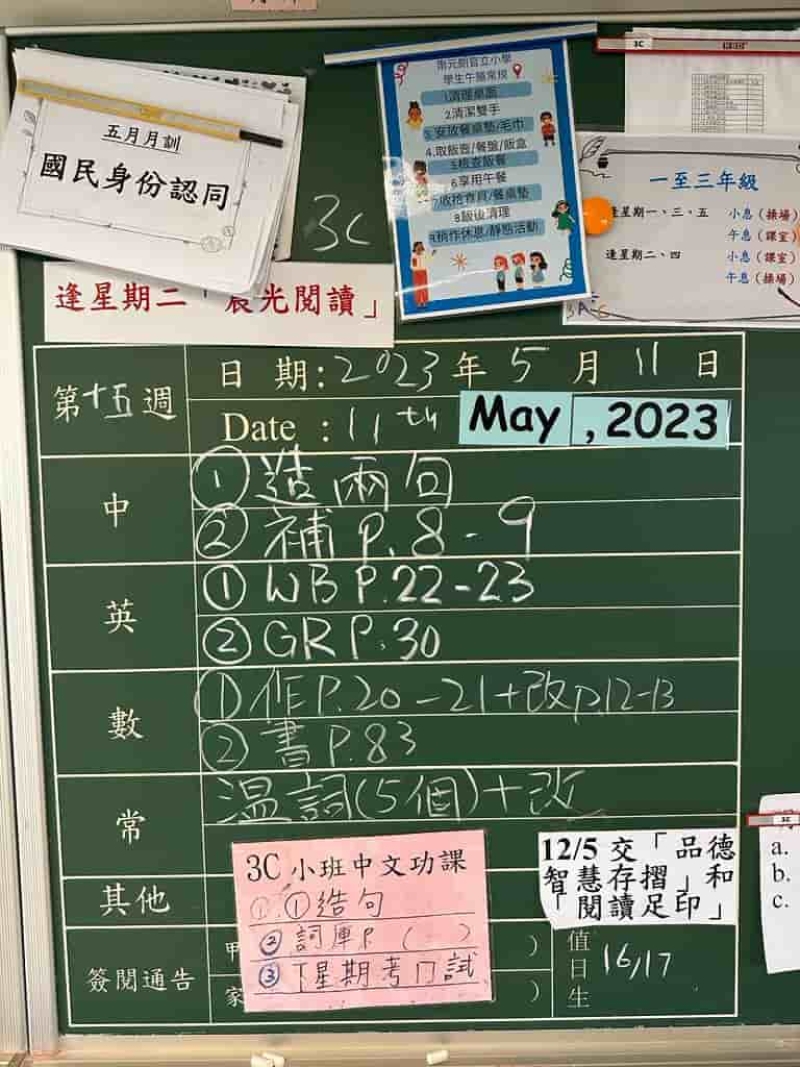 五月月訓
國民身份認同
3C
逢星期二「晨光閱讀」
官立小學
學生午膳常規
1.清理桌面
2.清潔雙手
3.安放餐桌墊/毛巾
4.取飯壺/餐盤/飯盒
5.檢查飯餐
6.享用午餐
7.收拾食具/餐桌墊
8.飯後清理
9.稍作休息/靜態活動
3C
一至三年級
逢星期一、三、五 小息(操場)
午息(課室)
逢星期二、四 小息(課室)
午息(操場)
第十五週
日 期:2023年5月11日
Date :11th May ,2023
中
①造兩句
②補P.8-9
英
①WB P.22-23
②GR P.30
數
①作P.20-21+改p.12-13
②書P.83
常
温詞(5個)+改
其他
3C小班中文功課
①造句
②詞庫P( )
③下星期考口試
12/5交「品德
智慧存摺」和
「閱讀足印」
簽閱通告
家
)
)
值日生
16/17
a.
b.
c.